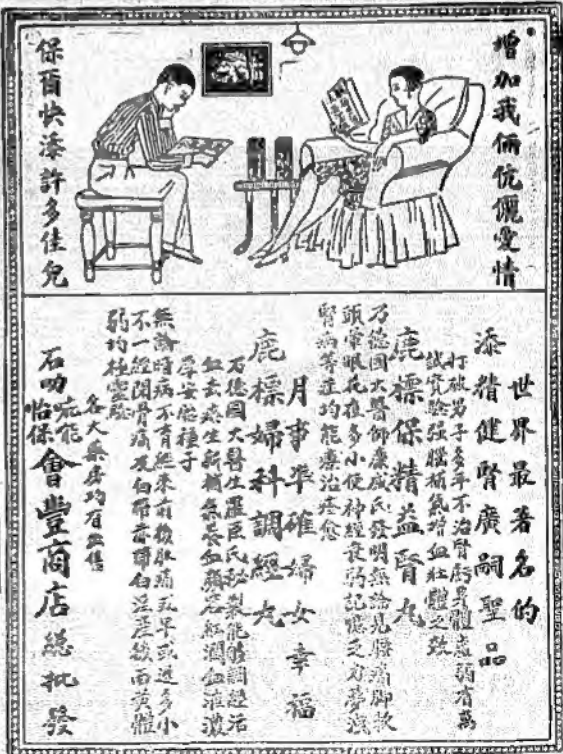 增加我倆伉儷愛情
保留快添許多佳兒
世界最著名的
添精健腎廣嗣聖品
打破男子多年不治腎虧身體虛弱有萬
試實驗強腦補氣增血壯體之效
鹿標保精益腎丸
乃德國大醫師廉威氏發明無論見腰痛脚軟
頭暈眼花夜多小便神經衰弱記憶乏力夢洩
腎病等症均能療治痊愈
月事準確婦女幸福
鹿標婦科調經丸
乃德國大醫生羅臣氏秘製能够調經活
血去瘀生新補氣養血
孕安胎種子
無論時病不育經來前後腹痛或早或遲多小
不一經閉骨痛及白帶赤帶白淫產後面黃體
弱均極靈驗
各大藥房均有出售
石叻
庇能
怡保
會豐商店總批發